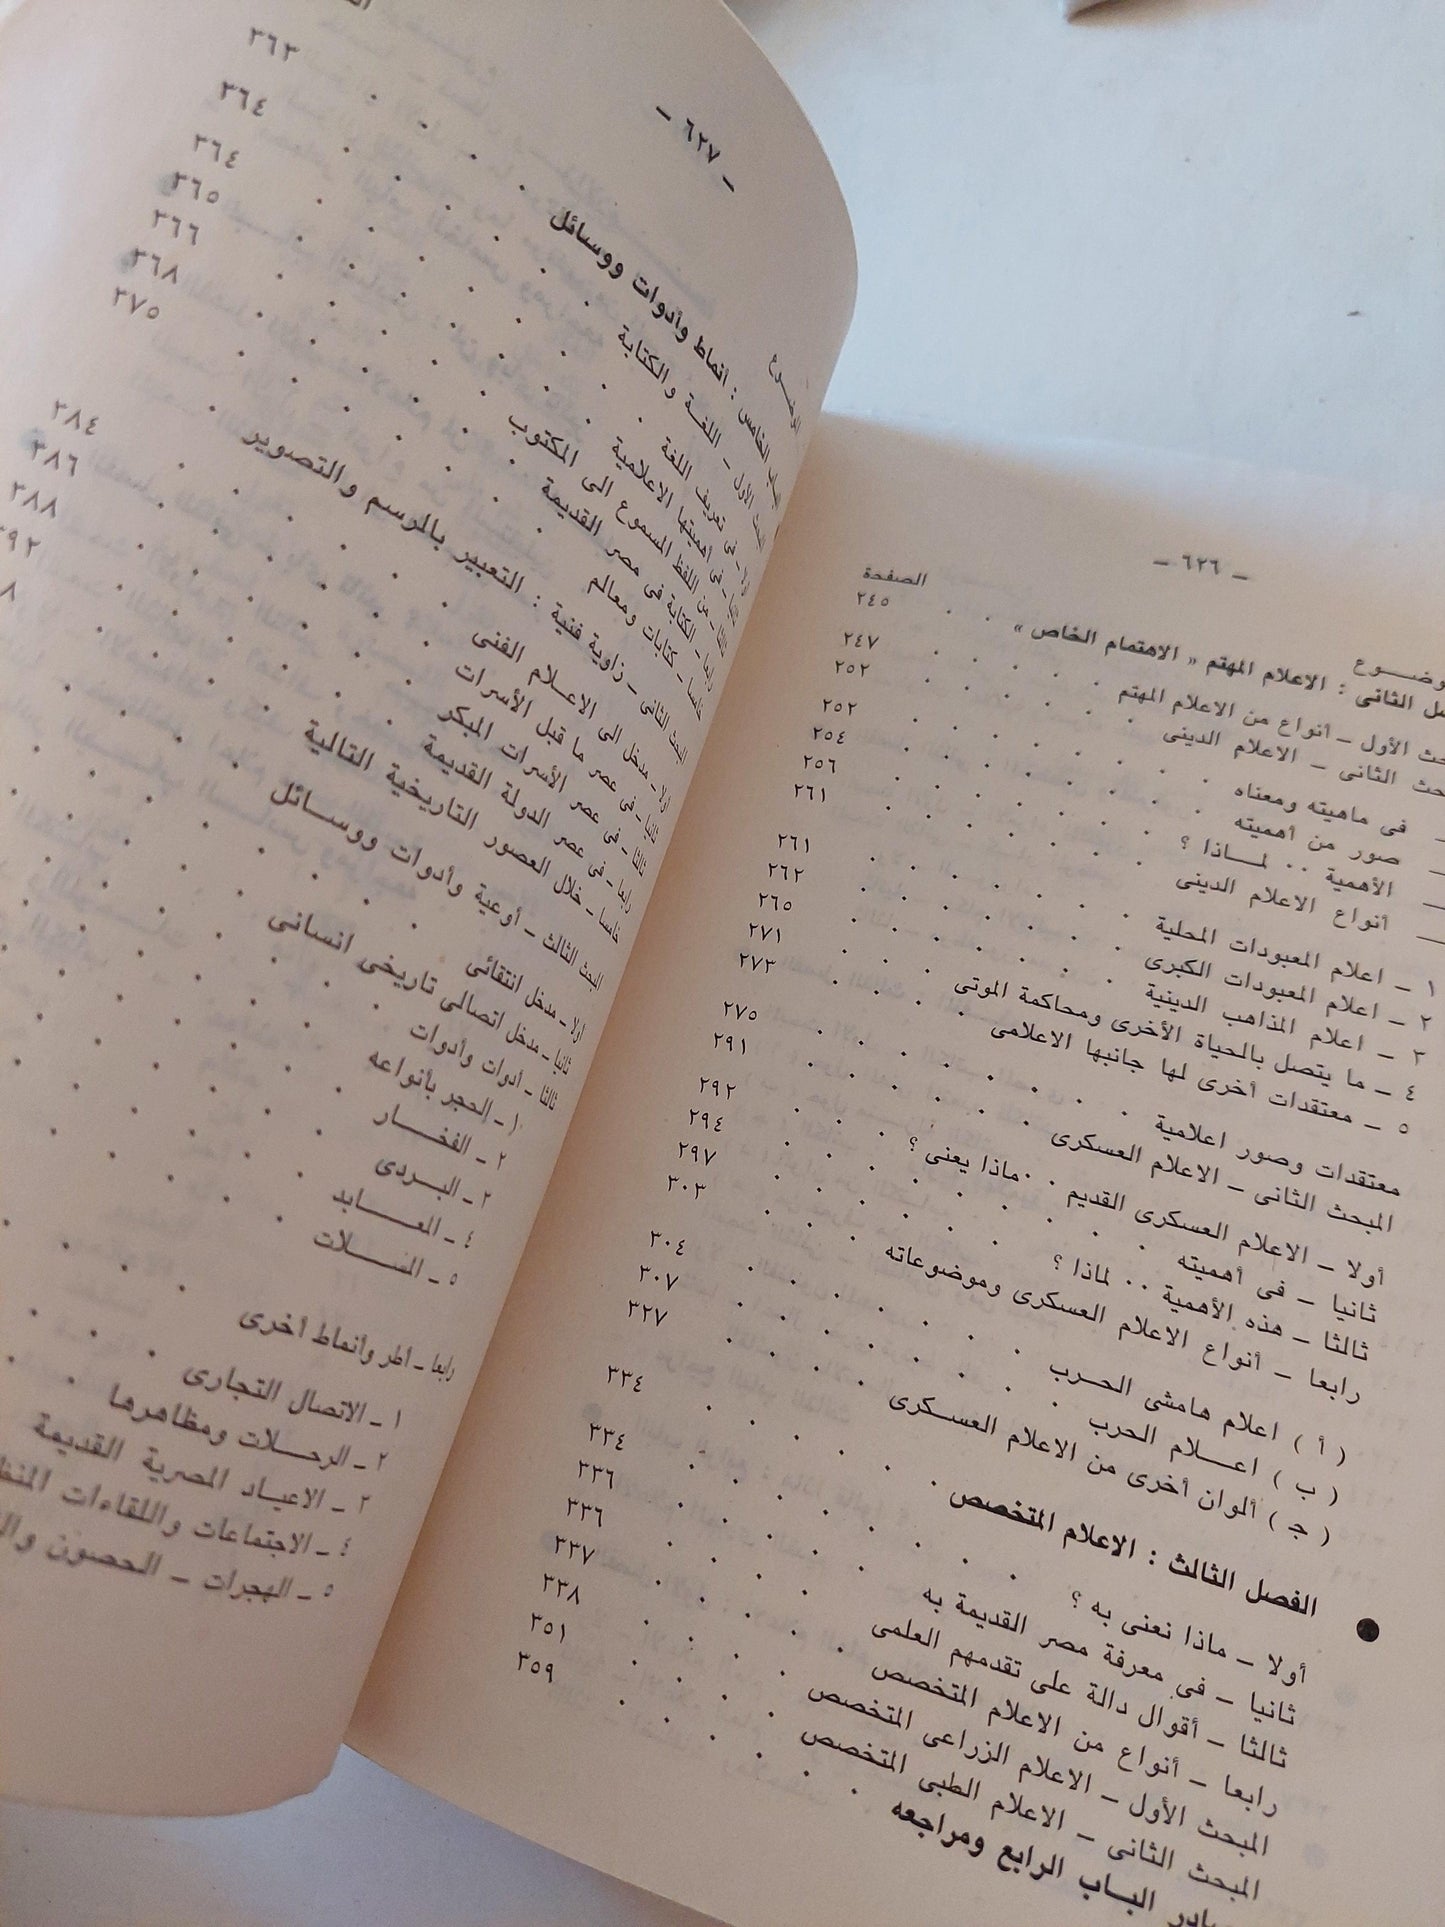 — ٦٢٦ —
الصفحة
الثانى : الاعلام المهتم « الاهتمام الخاص » ٢٤٥
الأول — أنواع من الاعلام المهتم ٢٤٧
الثانى — الاعلام الدينى ٢٥٢
— فى ماهيته ومعناه ٢٥٢
— صور من أهميته ٢٥٤
— الأهمية ٠٠ لمـاذا ؟ ٢٥٦
— أنواع الاعلام الدينى ٢٦١
١ — اعلام المعبودات المحلية ٢٦١
٢ — اعلام المعبودات الكبرى ٢٦٢
٣ — اعلام المذاهب الدينية ٢٦٥
٤ — ما يتصل بالحياة الأخرى ومحاكمة الموتى ٢٧١
٥ — معتقدات أخرى لها جانبها الاعلامى ٢٧٣
معتقدات وصور اعلامية ٢٧٥
المبحث الثانى — الاعلام العسكرى ٢٩١
أولا — الاعلام العسكرى القديم ٠٠ ماذا يعنى ؟ ٢٩٢
ثانيا — فى أهميته ٢٩٤
ثالثا — هذه الأهمية ٠٠ لماذا ؟ ٢٩٧
رابعا — أنواع الاعلام العسكرى وموضوعاته ٣٠٣
( أ ) اعلام هامشى الحـرب ٣٠٤
( ب ) اعـلام الحرب ٣٠٧
( جـ ) ألوان أخرى من الاعلام العسـكرى ٣٢٧
● الفصل الثالث : الاعلام المتخصص ٣٣٤
أولا — ماذا نعنى به ؟ ٣٣٤
ثانيا — فى معرفة مصر القديمة به ٣٣٦
ثالثا — أقوال دالة على تقدمهم العلمى ٣٣٦
رابعا — أنواع من الاعلام المتخصص ٣٣٧
المبحث الأول — الاعلام الزراعى المتخصص ٣٣٨
المبحث الثانى — الاعلام الطبى المتخصص ٣٥١
البـاب الرابع ومراجعه ٣٥٩
— ٦٢٧ —
الخامس : أنماط وأدوات ووسائل ٣٦٣
الأول — اللغـة والكتابة ٣٦٤
أولا — فى تعريف اللغة ٣٦٤
ثانيا — فى أهميتها الاعلامية ٣٦٥
ثالثا — من اللفظ المسموع الى المكتوب ٣٦٦
رابعا — الكتابة فى مصر القديمة ٣٦٨
خامسا — كتابات ومعالم ٣٧٥
المبحث الثانى — زاوية فنية : التعبير بالرسم والتصوير
أولا — مدخل الى الاعـلام الفنى ٣٨٤
ثانيا — فى عصر ما قبل الأسرات ٣٨٦
ثالثا — فى عصر الأسرات المبكر ٣٨٨
رابعا — فى عصر الدولة القديمة
خامسا — خلال العصور التاريخية التالية
المبحث الثالث — أوعية وأدوات ووسـائل
أولا — مدخل انتقائى
ثانيا — مدخل اتصالى تاريخى انسانى
ثالثا — أدوات وأدوات
١ — الحجر بأنواعه
٢ — الفخـار
٣ — البـردى
٤ — المعـابد
٥ — المسـلات
رابعا — أطر وأنماط أخرى
١ — الاتصال التجارى
٢ — الرحـلات ومظاهرها
٣ — الاعيـاد المصرية القديمة
٤ — الاجتماعات واللقاءات
٥ — الهجرات — الحصون